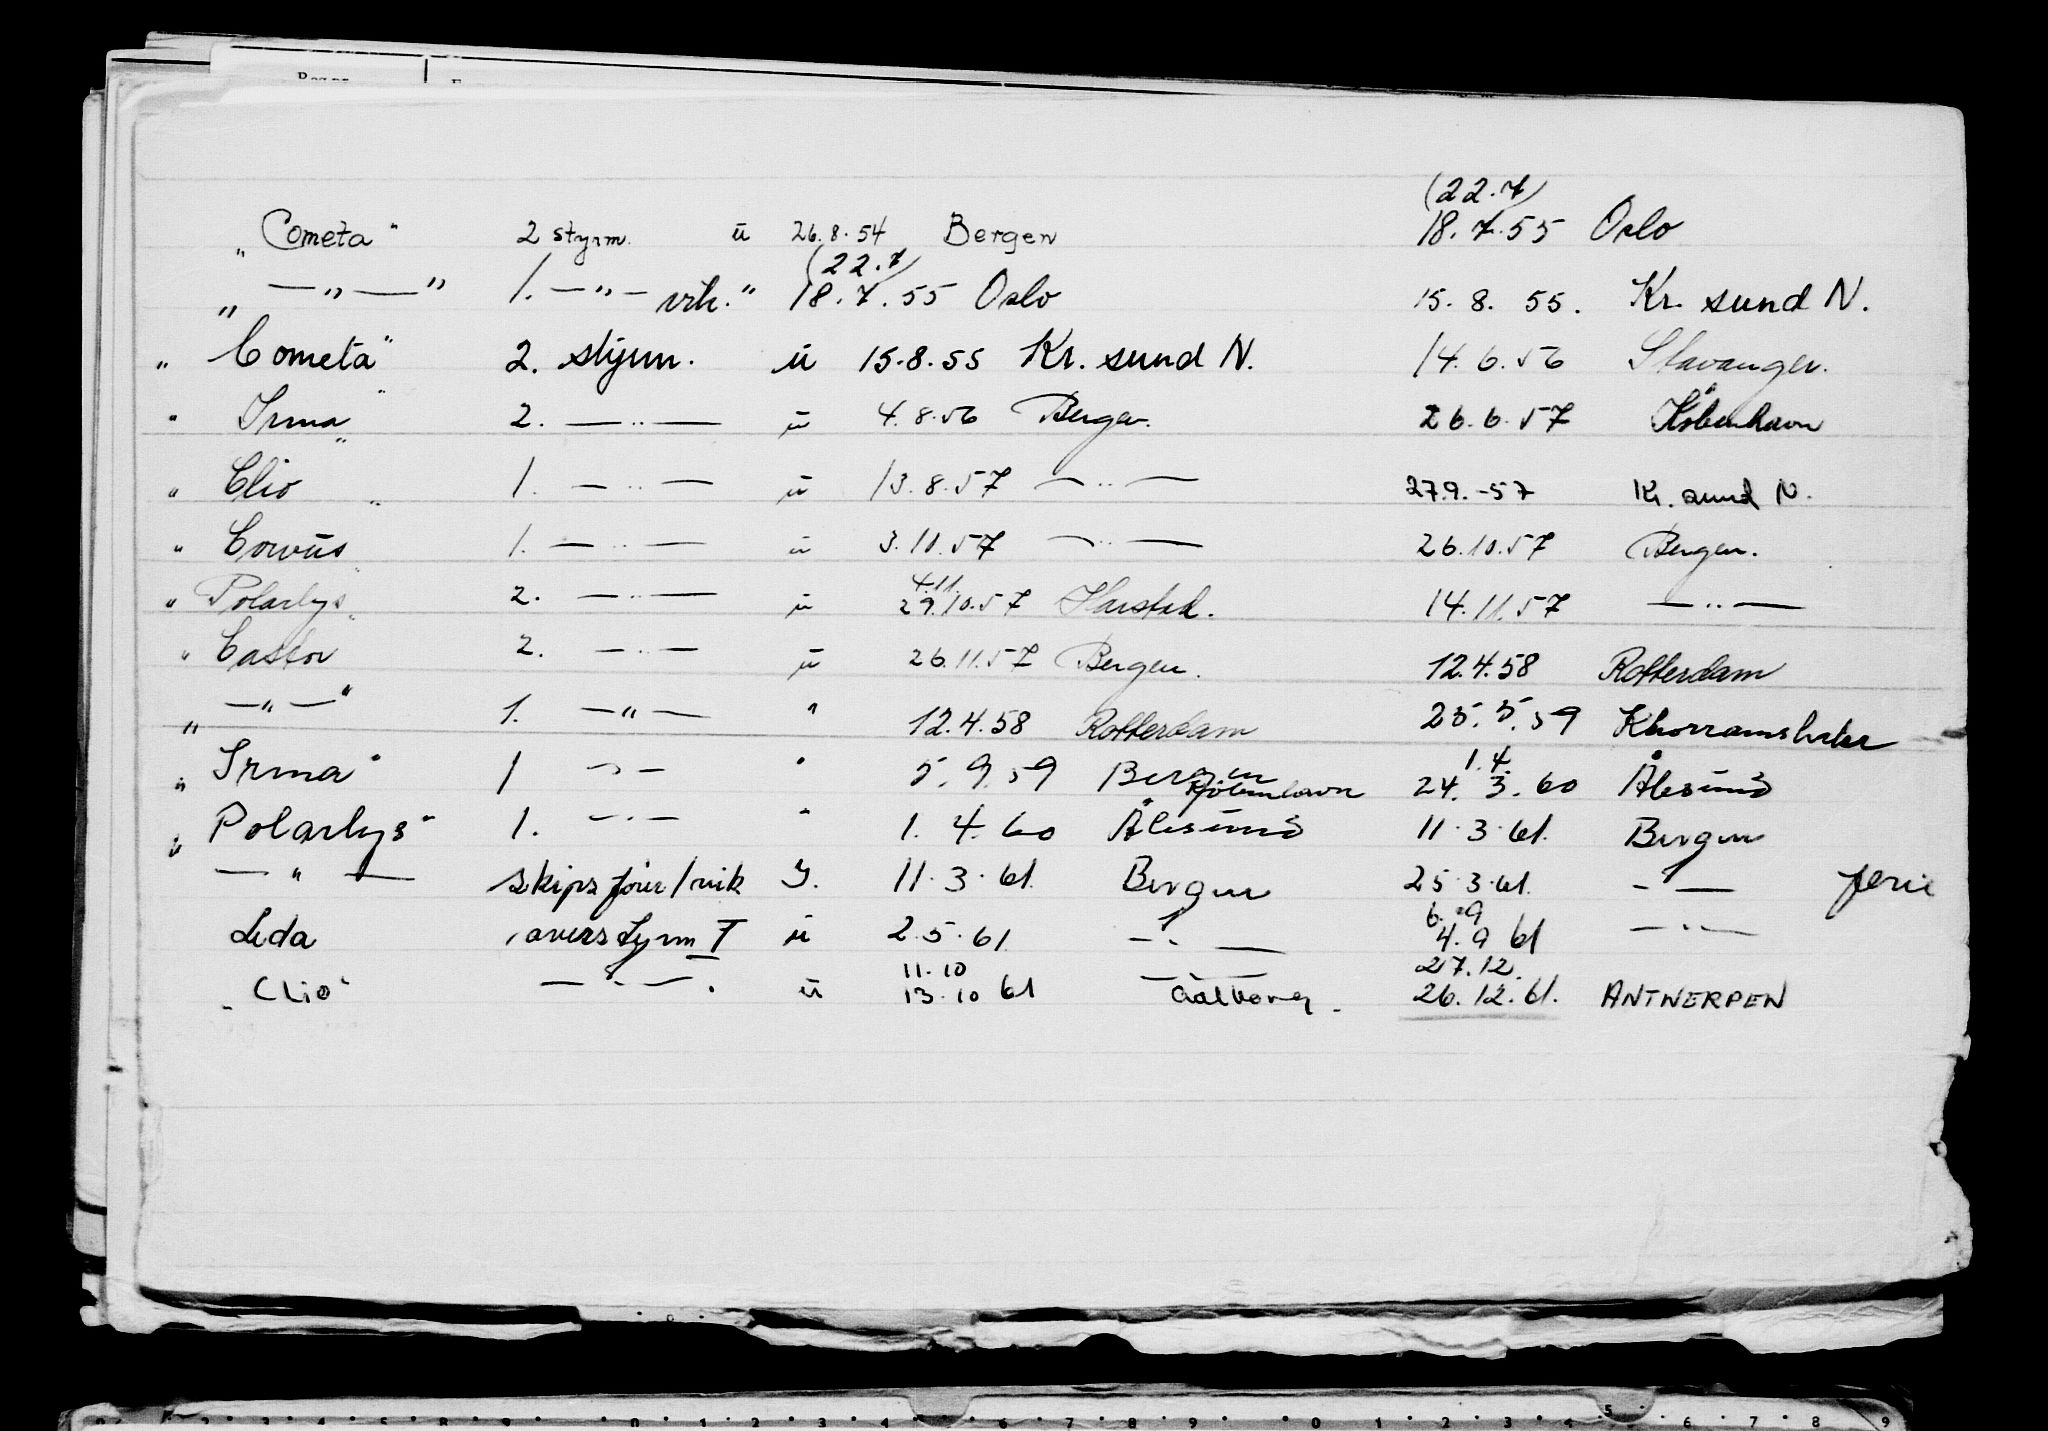 (22.7)
„Cometa" 2 styrm. u 26.8.54 Bergen 18.7.55 Oslo
(22.7)
„ —"—" 1. —"— vik." 18.7.55 Oslo 15.8.55. Kr. sund N.
„Cometa" 2. styrm. u 15.8.55 Kr. sund N. 14.6.56 Stavanger.
"Irma" 2. —"— u 4.8.56 Bergen. 26.6.57 København
"Clio" 1. —"— u 13.8.57 —"— 27.9.-57 Kr. sund N.
"Corvus" 1. —"— u 3.10.57 —"— 26.10.57 Bergen.
4.11.
"Polarlys" 2. —"— u 29.10.57 Harstad. 14.11.57 —"—
"Castor 2. —"— u 26.11.57 Bergen. 12.4.58 Rotterdam
„ —"—" 1. —"— " 12.4.58 Rotterdam 25.5.59 Khorramshahr
1.4.
„Irma" 1 —"— " 5.9.59 Bergen København 24.3.60 Ålesund
„Polarlys" 1. —"— " 1.4.60 Ålesund 11.3.61. Bergen
—"— skipsfører/vik 11.3.61. Bergen 25.3.61. —"— ferie
6.9
Leda overstyrm I u 2.5.61 —"— 4.9 61 —"—
11.10 — — 27.12.
"Clio" —"—. u 13.10 61 Aalborg. 26.12.61. ANTWERPEN
2 3 4 5 6 9 0 1 2 3 4 6 7 8 9 0 1 2 3 4 5 6 7 8 9